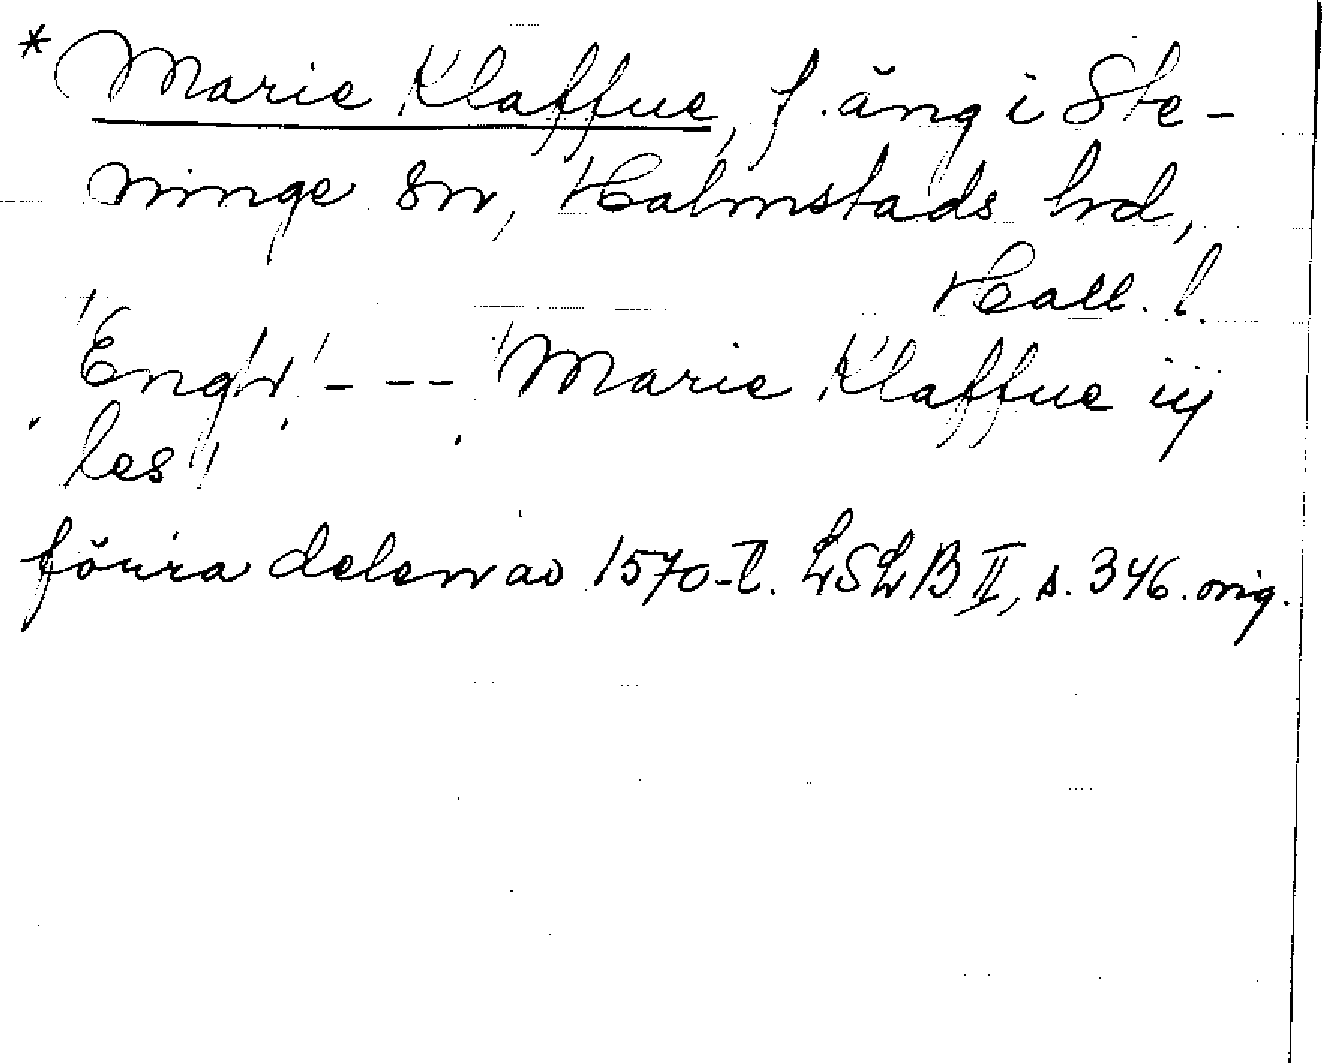 * Marie Klaffue, f. äng i Ste-
ninge sn, Halmstads hd,
Hall. l.
"Engh' --- 'Marie Klaffue iij
les"
förra delen av 1570-t. LSLB II, s. 346. orig.